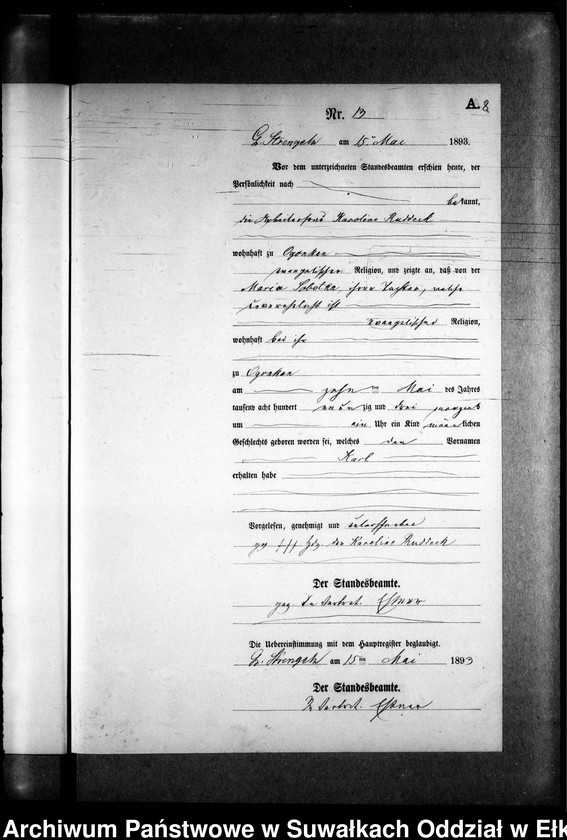 A. 8
Nr. 13
Gr. Strengeln am 15ten Mai 1893.
Vor dem unterzeichneten Standesbeamten erschien heute, der
Persönlichkeit nach
bekannt,
die Arbeiterfrau Karoline Ruddeck
wohnhaft zu Ogonken
evangelischer Religion, und zeigte an, daß von der
Maria Sobotta, ihrer Tochter, welche
unverehelicht ist
evangelischer Religion,
wohnhaft bei ihr
zu Ogonken
am zehn ten Mai des Jahres
tausend acht hundert neun zig und drei morgens
um ein Uhr ein Kind männlichen
Geschlechts geboren worden sei, welches den Vornamen
Karl
erhalten habe
Vorgelesen, genehmigt und
gez. +++ Hdz. der Karoline Ruddeck
Der Standesbeamte.
gez. In Vertret.
Die Uebereinstimmung mit dem Hauptregister beglaubigt.
Gr. Strengeln am 15ten Mai 1893
Der Standesbeamte.
In Vertret.
Archiwum Państwowe w Suwałkach Oddział w Ełk